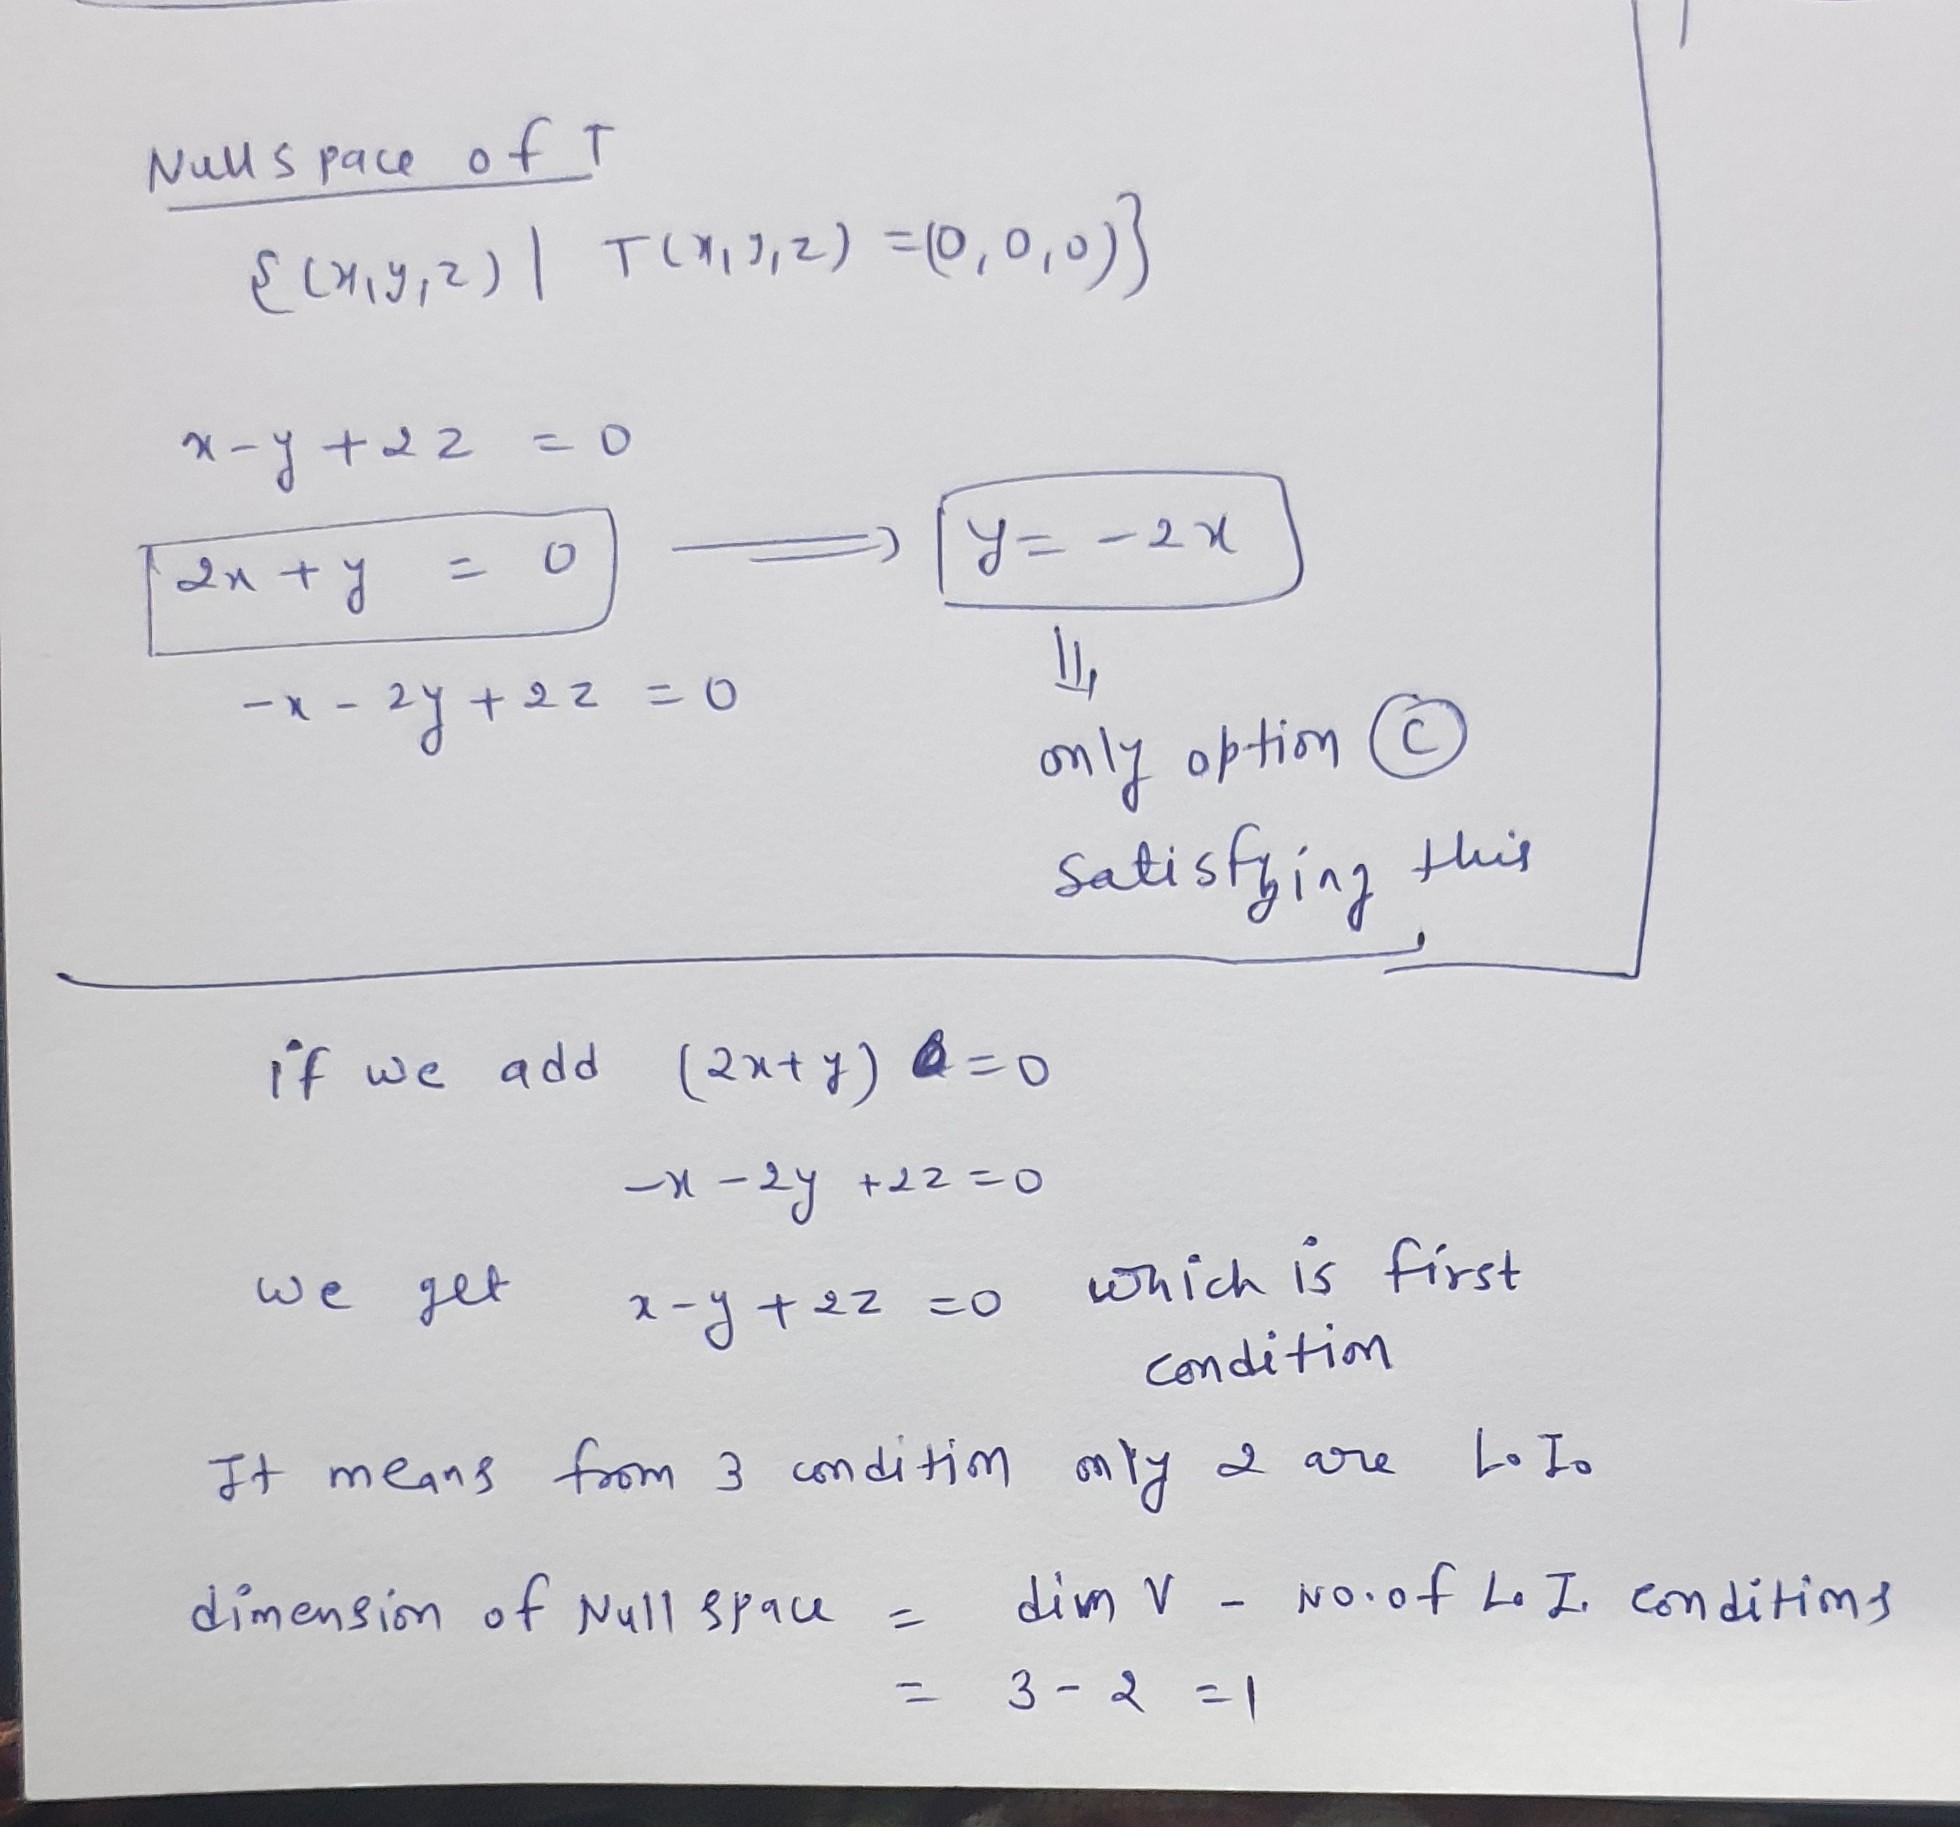 Null space of T
{(x,y,z) | T(x,y,z) = (0,0,0)}
x-y+2z = 0
2x+y = 0 ⟹ y = -2x
-x-2y+2z = 0
⇓
only option (C)
satisfying this
if we add (2x+y) = 0
-x-2y+2z=0
we get x-y+2z=0 which is first
condition
It means from 3 condition only 2 are L.I.
dimension of Null space = dim V - No. of L.I. conditions
= 3-2 =1